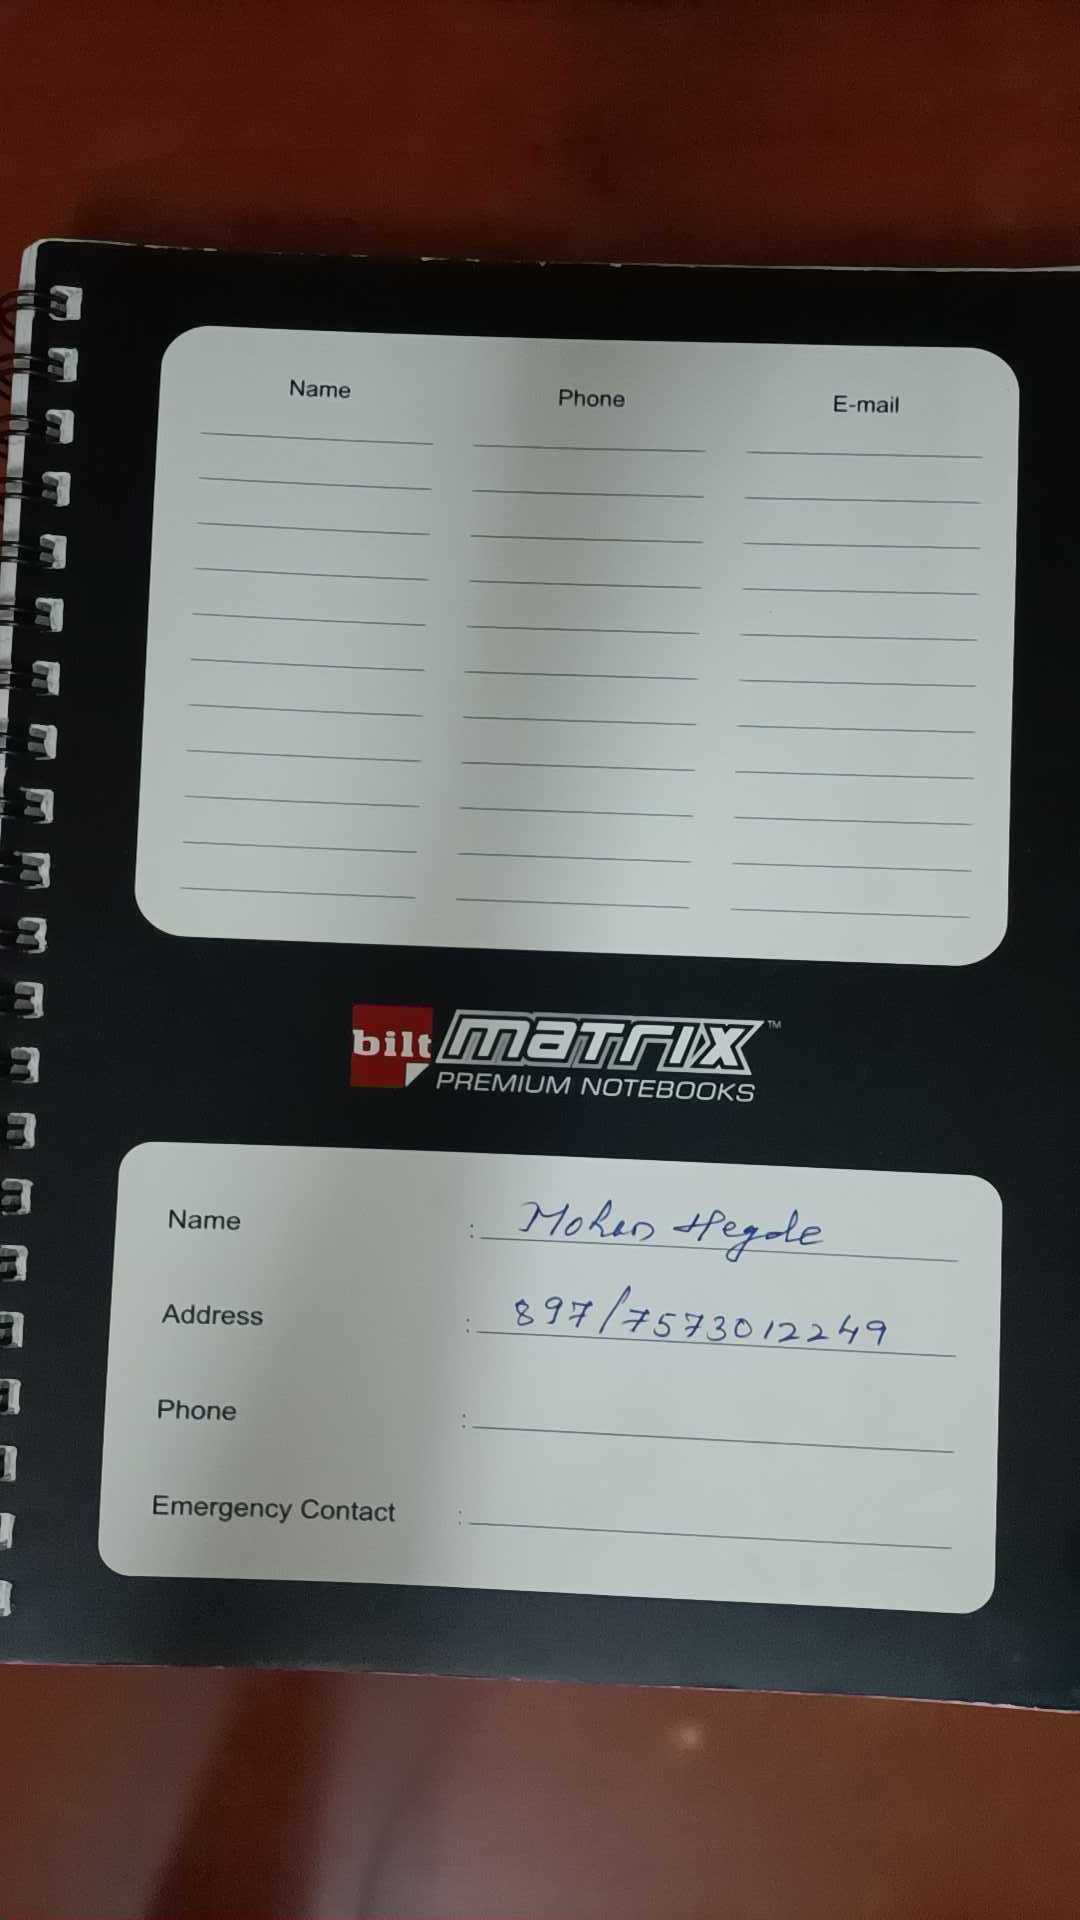 Name Phone E-mail
bilt matrix™
PREMIUM NOTEBOOKS
Name : Mohan Hegde
Address : 897/7573012249
Phone :
Emergency Contact :